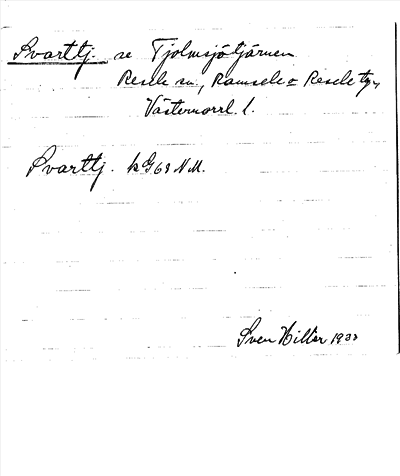 Svarttj. se Tjolmsjötjärnen
Resele sn., Ramsele o Resele tg.,
Västernorrl. l.
Svarttj. k G63 N.M.
Sven Hiller 1933